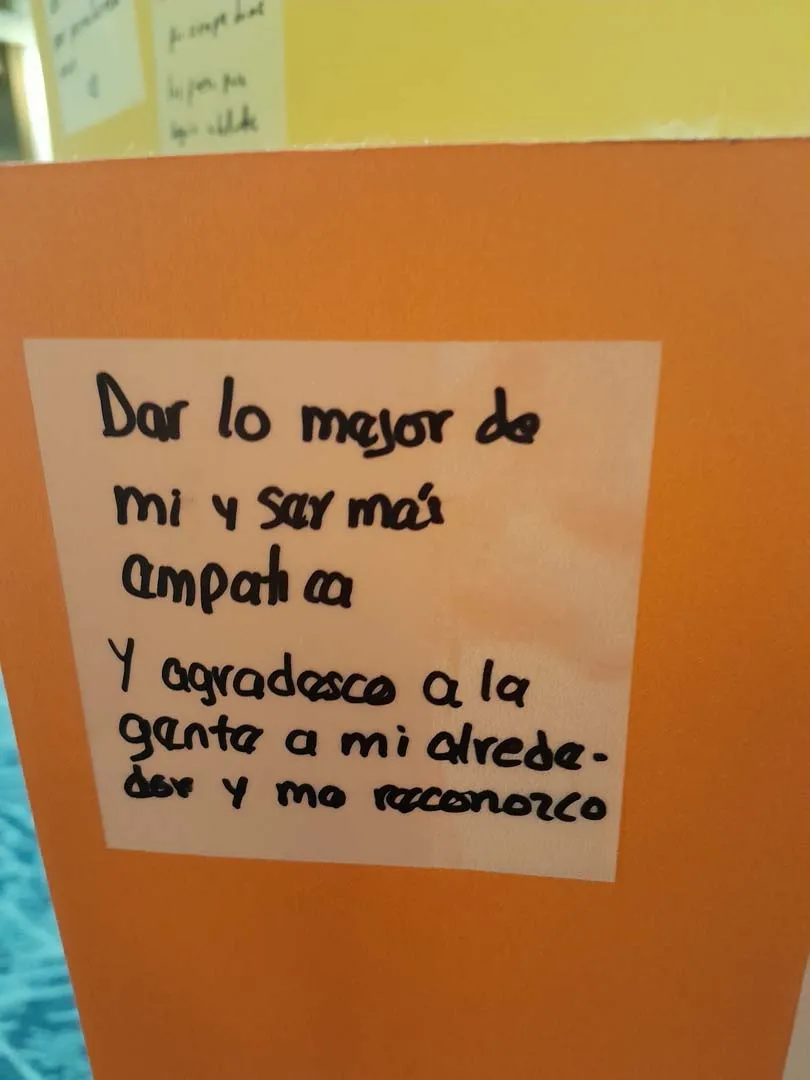 Dar lo mejor de
mi y ser más
empatica
Y agradesco a la
gente a mi alrede-
dor y me reconozco